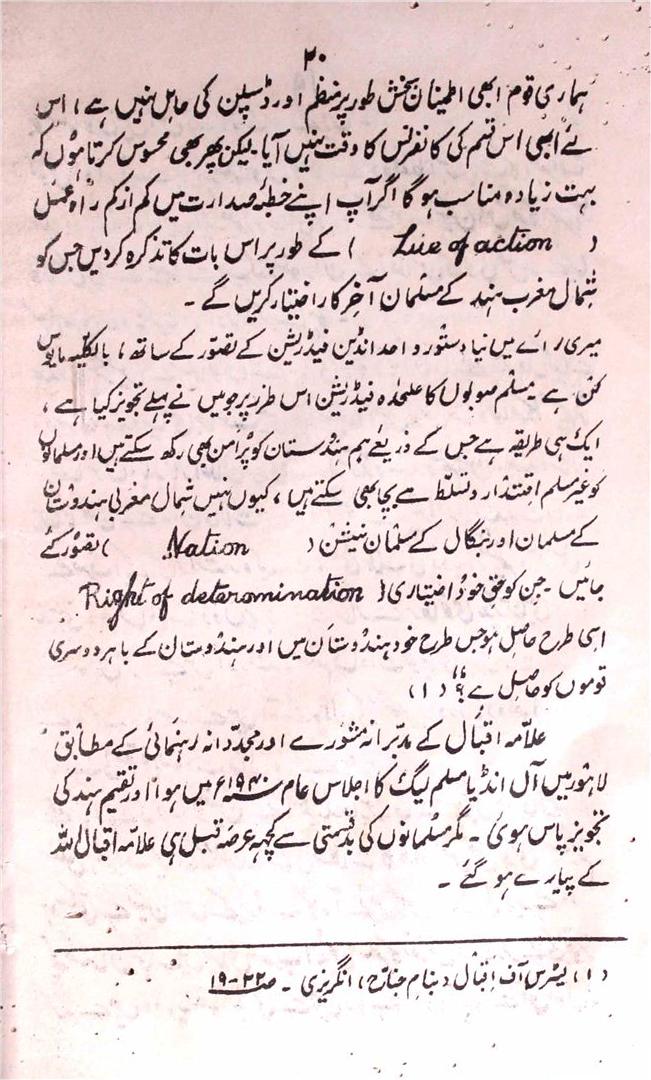 ۲۰
ہماری قوم ابھی اطمینان بخش طور پر منظم اور ڈسپلن کی حامل نہیں ہے، اس
لئے ابھی اس قسم کی کانفرنس کا وقت نہیں آیا۔ لیکن پھر بھی محسوس کرتا ہوں کہ
بہت زیادہ مناسب ہوگا اگر آپ اپنے خطبۂ صدارت میں کم از کم راہ عمل
( Lue of action ) کے طور پر اس بات کا تذکرہ کر دیں جس کو
شمال مغرب ہند کے مسلمان آخر کار اختیار کریں گے ۔
میری رائے میں نیا دستور واحد انڈین فیڈریشن کے تصور کے ساتھ، بالکلیہ مایوس
کن ہے۔ مسلم صوبوں کا علٰحدہ فیڈریشن اس طرز پر جو میں نے پہلے تجویز کیا ہے ،
ایک ہی طریقہ ہے جس کے ذریعے ہم ہندوستان کو پُر امن بھی رکھ سکتے ہیں اور مسلمانوں
کو غیر مسلم اقتدار و تسلّط سے بچا بھی سکتے ہیں ، کیوں نہیں شمال مغربی ہندوستان
کے مسلمان اور بنگال کے مسلمان نیشن ( Nation ) تصور کئے
جائیں ۔ جن کو حق خود اختیاری ( Right of deteromination
اسی طرح حاصل ہو جس طرح خود ہندوستان میں اور ہندوستان کے باہر دوسری
قوموں کو حاصل ہے؟" (۱)
علامہ اقبال کے مدبرانہ مشورے اور مجددانہ رہنمائی کے مطابق
لاہور میں آل انڈیا مسلم لیگ کا اجلاس عام ۱۹۴۰ء میں ہوا اور تقسیم ہند کی
تجویز پاس ہوئی ۔ مگر مسلمانوں کی بدقسمتی سے کچھ عرصہ قبل ہی علامہ اقبال اللہ
کے پیارے ہو گئے ۔
(۱) لیٹرس آف اقبال (بنام جناح) انگریزی ۔ ص ۲۲-۱۹